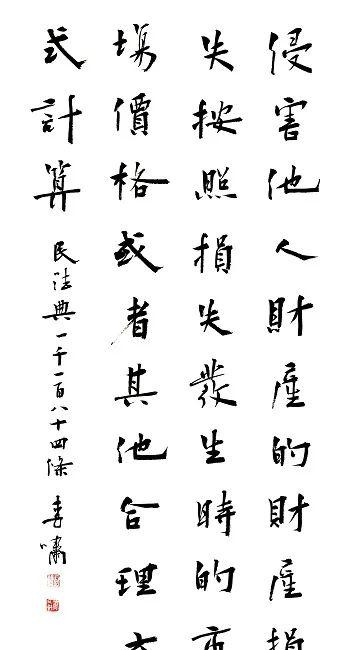 侵害他人財產的財產損
失按照損失發生時的市
場價格或者其他合理方
式計算
民法典一千一百八十四條 李嘯